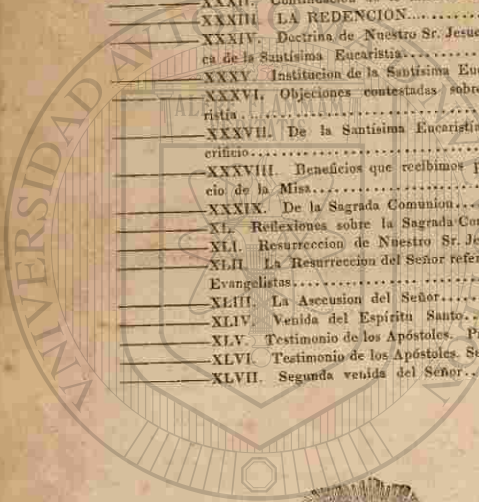 XXXII. Continuacion de la
XXXIII. LA REDENCION...........
XXXIV. Doctrina de Nuestro Sr. Jesuc
ca de la Santísima Eucaristia..........
XXXV. Institucion de la Santísima Eu
XXXVI. Objeciones contestadas sobre
ristía..........
XXXVII. De la Santísima Eucaristía
crificio..........
XXXVIII. Beneficios que recibimos p
cio de la Misa..........
XXXIX. De la Sagrada Comunion....
XL. Reflexiones sobre la Sagrada Com
XLI. Resurreccion de Nuestro Sr. Je
XLII. La Resurreccion del Señor refer
Evangelistas..........
XLIII. La Ascension del Señor.....
XLIV. Venida del Espíritu Santo..
XLV. Testimonio de los Apóstoles. P
XLVI. Testimonio de los Apóstoles. Se
XLVII. Segunda venida del Señor..
UNIVERSIDAD AUT
ALERE FLAMMAM